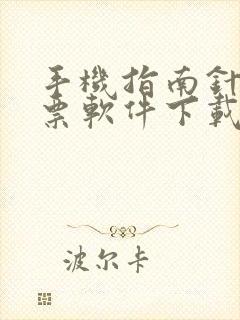 手機指南針
票軟件下載
波尔卡